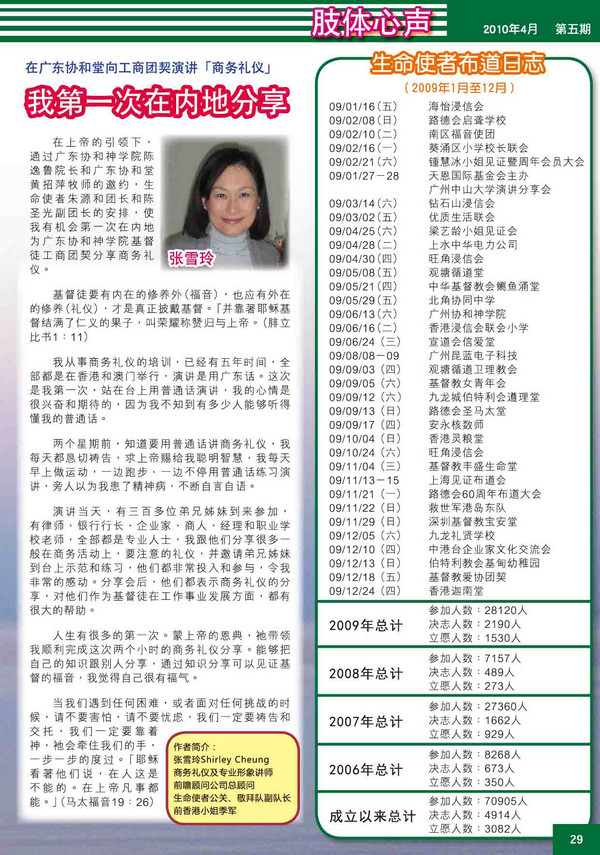 肢体心声
2010年4月 第五期
在广东协和堂向工商团契演讲「商务礼仪」
我第一次在内地分享
在上帝的引领下，
通过广东协和神学院陈
逸鲁院长和广东协和堂
黄招萍牧师的邀约，生
命使者朱源和团长和陈
圣光副团长的安排，使
我有机会第一次在内地
为广东协和神学院基督
徒工商团契分享商务礼
仪。
张雪玲
基督徒要有内在的修养外（福音），也应有外在
的修养（礼仪），才是真正披戴基督。「并靠著耶稣基
督结满了仁义的果子，叫荣耀称赞归与上帝。（腓立
比书1：11）
我从事商务礼仪的培训，已经有五年时间，全
部都是在香港和澳门举行，演讲是用广东话。这次
是我第一次，站在台上用普通话演讲，我的心情是
很兴奋和期待的，因为我不知到有多少人能够听得
懂我的普通话。
两个星期前，知道要用普通话讲商务礼仪，我
每天都恳切祷告，求上帝赐给我聪明智慧，我每天
早上做运动，一边跑步，一边不停用普通话练习演
讲，旁人以为我患了精神病，不断自言自语。
演讲当天，有三百多位弟兄姊妹到来参加，
有律师、银行行长、企业家、商人、经理和职业学
校老师，全部都是专业人士，我跟他们分享很多一
般在商务活动上，要注意的礼仪，并邀请弟兄姊妹
到台上示范和练习，他们都非常投入和参与，令我
非常的感动。分享会后，他们都表示商务礼仪的分
享，对他们作为基督徒在工作事业发展方面，都有
很大的帮助。
人生有很多的第一次。蒙上帝的恩典，祂带领
我顺利完成这次两个小时的商务礼仪分享。能够把
自己的知识跟别人分享，通过知识分享可以见证基
督的福音，我觉得自己很有福气。
当我们遇到任何困难，或者面对任何挑战的时
候，请不要害怕，请不要忧虑，我们一定要祷告和
交托，我们一定要靠着
神，祂会牵住我们的手，
一步一步的度过。「耶稣
看著他们说，在人这是
不能的。在上帝凡事都
能。」（马太福音19：26）
作者简介：
张雪玲Shirley Cheung
商务礼仪及专业形象讲师
前瞻顾问公司总顾问
生命使者公关、敬拜队副队长
前香港小姐季军
生命使者布道日志
（2009年1月至12月）
09/01/16（五） 海怡浸信会
09/02/08（日） 路德会启聋学校
09/02/10（二） 南区福音使团
09/02/16（一） 葵涌区小学校长联会
09/02/21（六） 锺慧冰小姐见证暨周年会员大会
09/01/27－28 天恩国际基金会主办
广州中山大学演讲分享会
09/03/14（六） 钻石山浸信会
09/03/02（五） 优质生活联会
09/04/25（六） 梁艺龄小姐见证会
09/04/28（二） 上水中华电力公司
09/04/30（四） 旺角浸信会
09/05/08（五） 观塘循道堂
09/05/21（四） 中华基督教会鲗鱼涌堂
09/05/29（五） 北角协同中学
09/06/13（六） 广州协和神学院
09/06/16（二） 香港浸信会联会小学
09/06/24（三） 宣道会信爱堂
09/08/08－09 广州昆蓝电子科技
09/09/03（四） 观塘循道卫理教会
09/09/05（六） 基督教女青年会
09/09/12（六） 九龙城伯特利会遵理堂
09/09/13（日） 路德会圣马太堂
09/09/17（四） 安永核数师
09/10/04（日） 香港灵粮堂
09/10/24（六） 旺角浸信会
09/11/04（三） 基督教丰盛生命堂
09/11/13－15 上海见证布道会
09/11/21（一） 路德会60周年布道大会
09/11/22（日） 救世军港岛东队
09/11/29（日） 深圳基督教宝安堂
09/12/05（六） 九龙礼贤学校
09/12/10（四） 中港台企业家文化交流会
09/12/13（日） 伯特利教会基甸幼稚园
09/12/18（五） 基督教爱协团契
09/12/24（四） 香港迦南堂
2009年总计
参加人数：28120人
决志人数：2190人
立愿人数：1530人
2008年总计
参加人数：7157人
决志人数：489人
立愿人数：273人
2007年总计
参加人数：27360人
决志人数：1662人
立愿人数：929人
2006年总计
参加人数：8268人
决志人数：673人
立愿人数：350人
成立以来总计
参加人数：70905人
决志人数：4914人
立愿人数：3082人
29